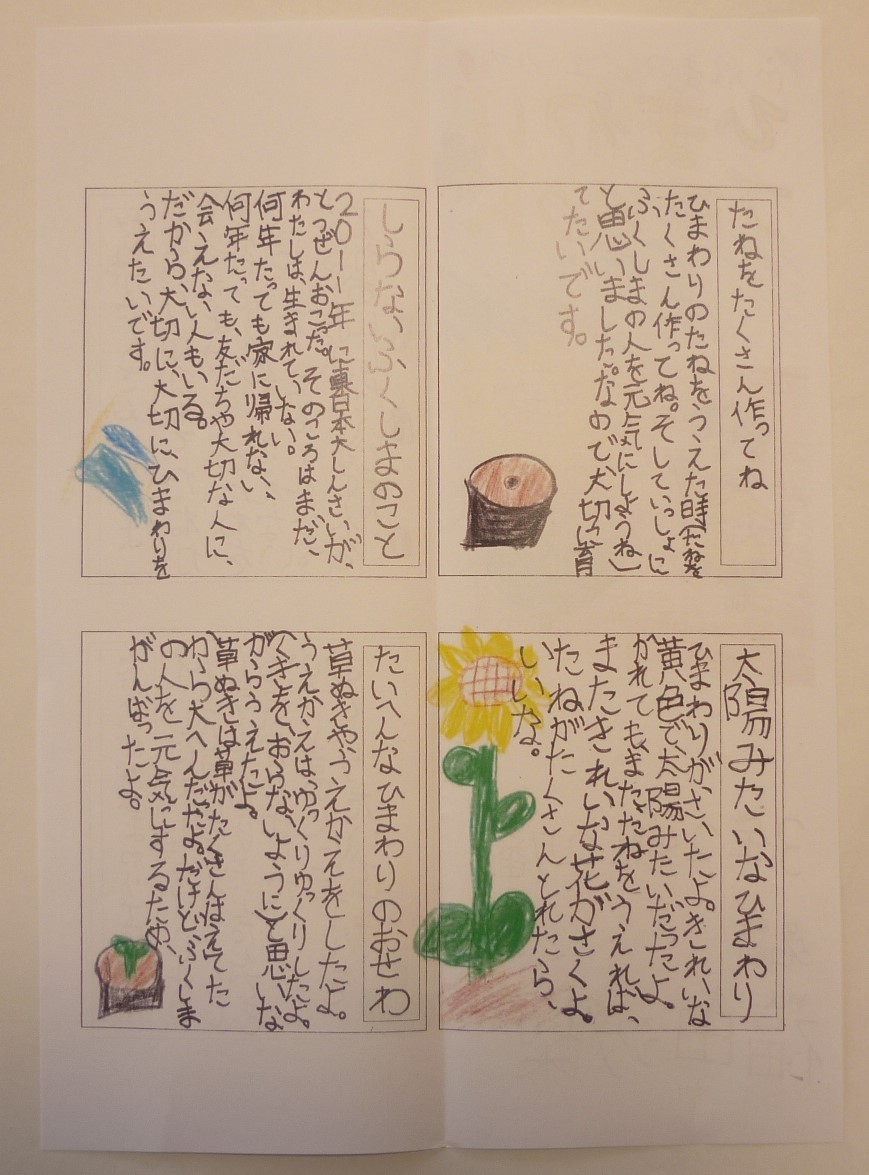 たねをたくさん作ってね
ひまわりのたねをうえた時「たねを
たくさん作ってね。そしていっしょに
ふくしまの人を元気にしようね」
と思いました。なので大切に育
てたいです。
しらないふくしまのこと
2011年に東日本大しんさいが、
とつぜんおこった。そのころはまだ、
わたしは、生まれていない。
何年たっても家に帰れない、
何年たっても、友だちや大切な人に、
会えない人もいる。
だから、大切に、大切に、ひまわりを
うえたいです。
太陽みたいなひまわり
ひまわりがさいたよ。きれいな
黄色で太陽みたいだったよ。
かれても、またたねをうえれば、
またきれいな花がさくよ。
たねがたくさんとれたら、
いいな。
たいへんなひまわりのおせわ
草ぬきやうえかえをしたよ。
うえかえは、ゆっくりゆっくりしたよ。
(くきを、おらないように)と思いな
がらうえたよ。
草ぬきは草がたくさんはえてた
から大へんだったよ。だけどふくしま
の人を元気にするため、
がんばったよ。